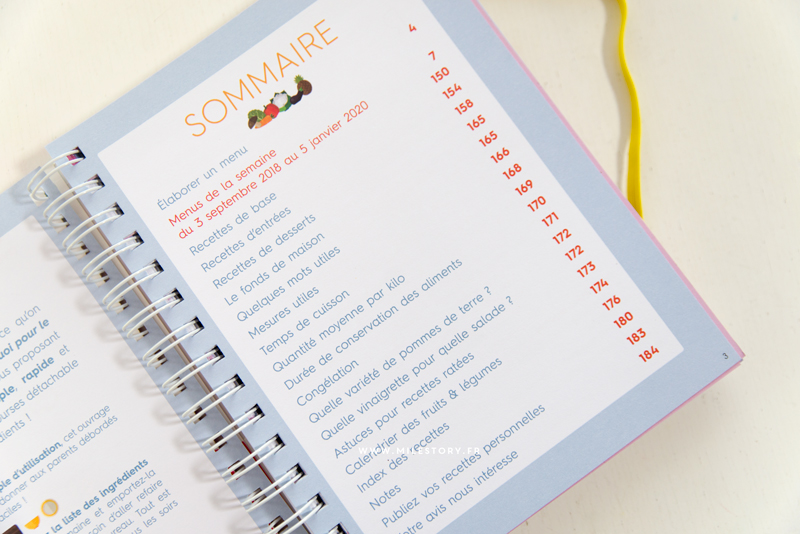 ce qu'on
quoi pour le
us proposant
ple, rapide et
ourses détachable
dients !
ple d'utilisation, cet ouvrage
donner aux parents débordés
aciles !
la liste des ingrédients
maine et emportez-la
soin d'aller refaire
reau. Tout est
us les soirs
SOMMAIRE
Élaborer un menu 4
Menus de la semaine
du 3 septembre 2018 au 5 janvier 2020 7
Recettes de base 150
Recettes d'entrées 154
Recettes de desserts 158
Le fonds de maison 165
Quelques mots utiles 165
Mesures utiles 166
Temps de cuisson 168
Quantité moyenne par kilo 169
Durée de conservation des aliments 170
Congélation 171
Quelle variété de pommes de terre ? 172
Quelle vinaigrette pour quelle salade ? 172
Astuces pour recettes ratées 173
Calendrier des fruits & légumes 174
Index des recettes 176
Notes 180
Publiez vos recettes personnelles 183
otre avis nous intéresse 184
3
WWW.MILESTORY.FR